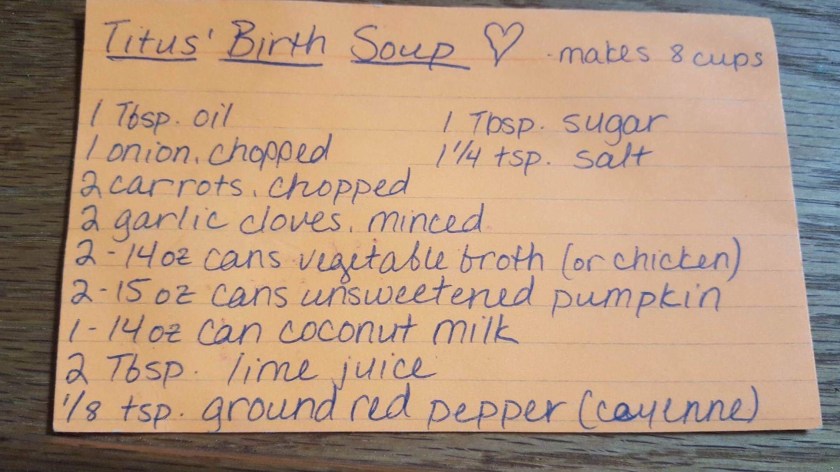 Titus' Birth Soup ♡ - makes 8 cups
1 Tbsp. oil
1 onion, chopped
2 carrots, chopped
2 garlic cloves, minced
2 - 14 oz cans vegetable broth (or chicken)
2 - 15 oz cans unsweetened pumpkin
1 - 14 oz can coconut milk
2 Tbsp. lime juice
1/8 tsp. ground red pepper (cayenne)
1 Tbsp. sugar
1 1/4 tsp. salt